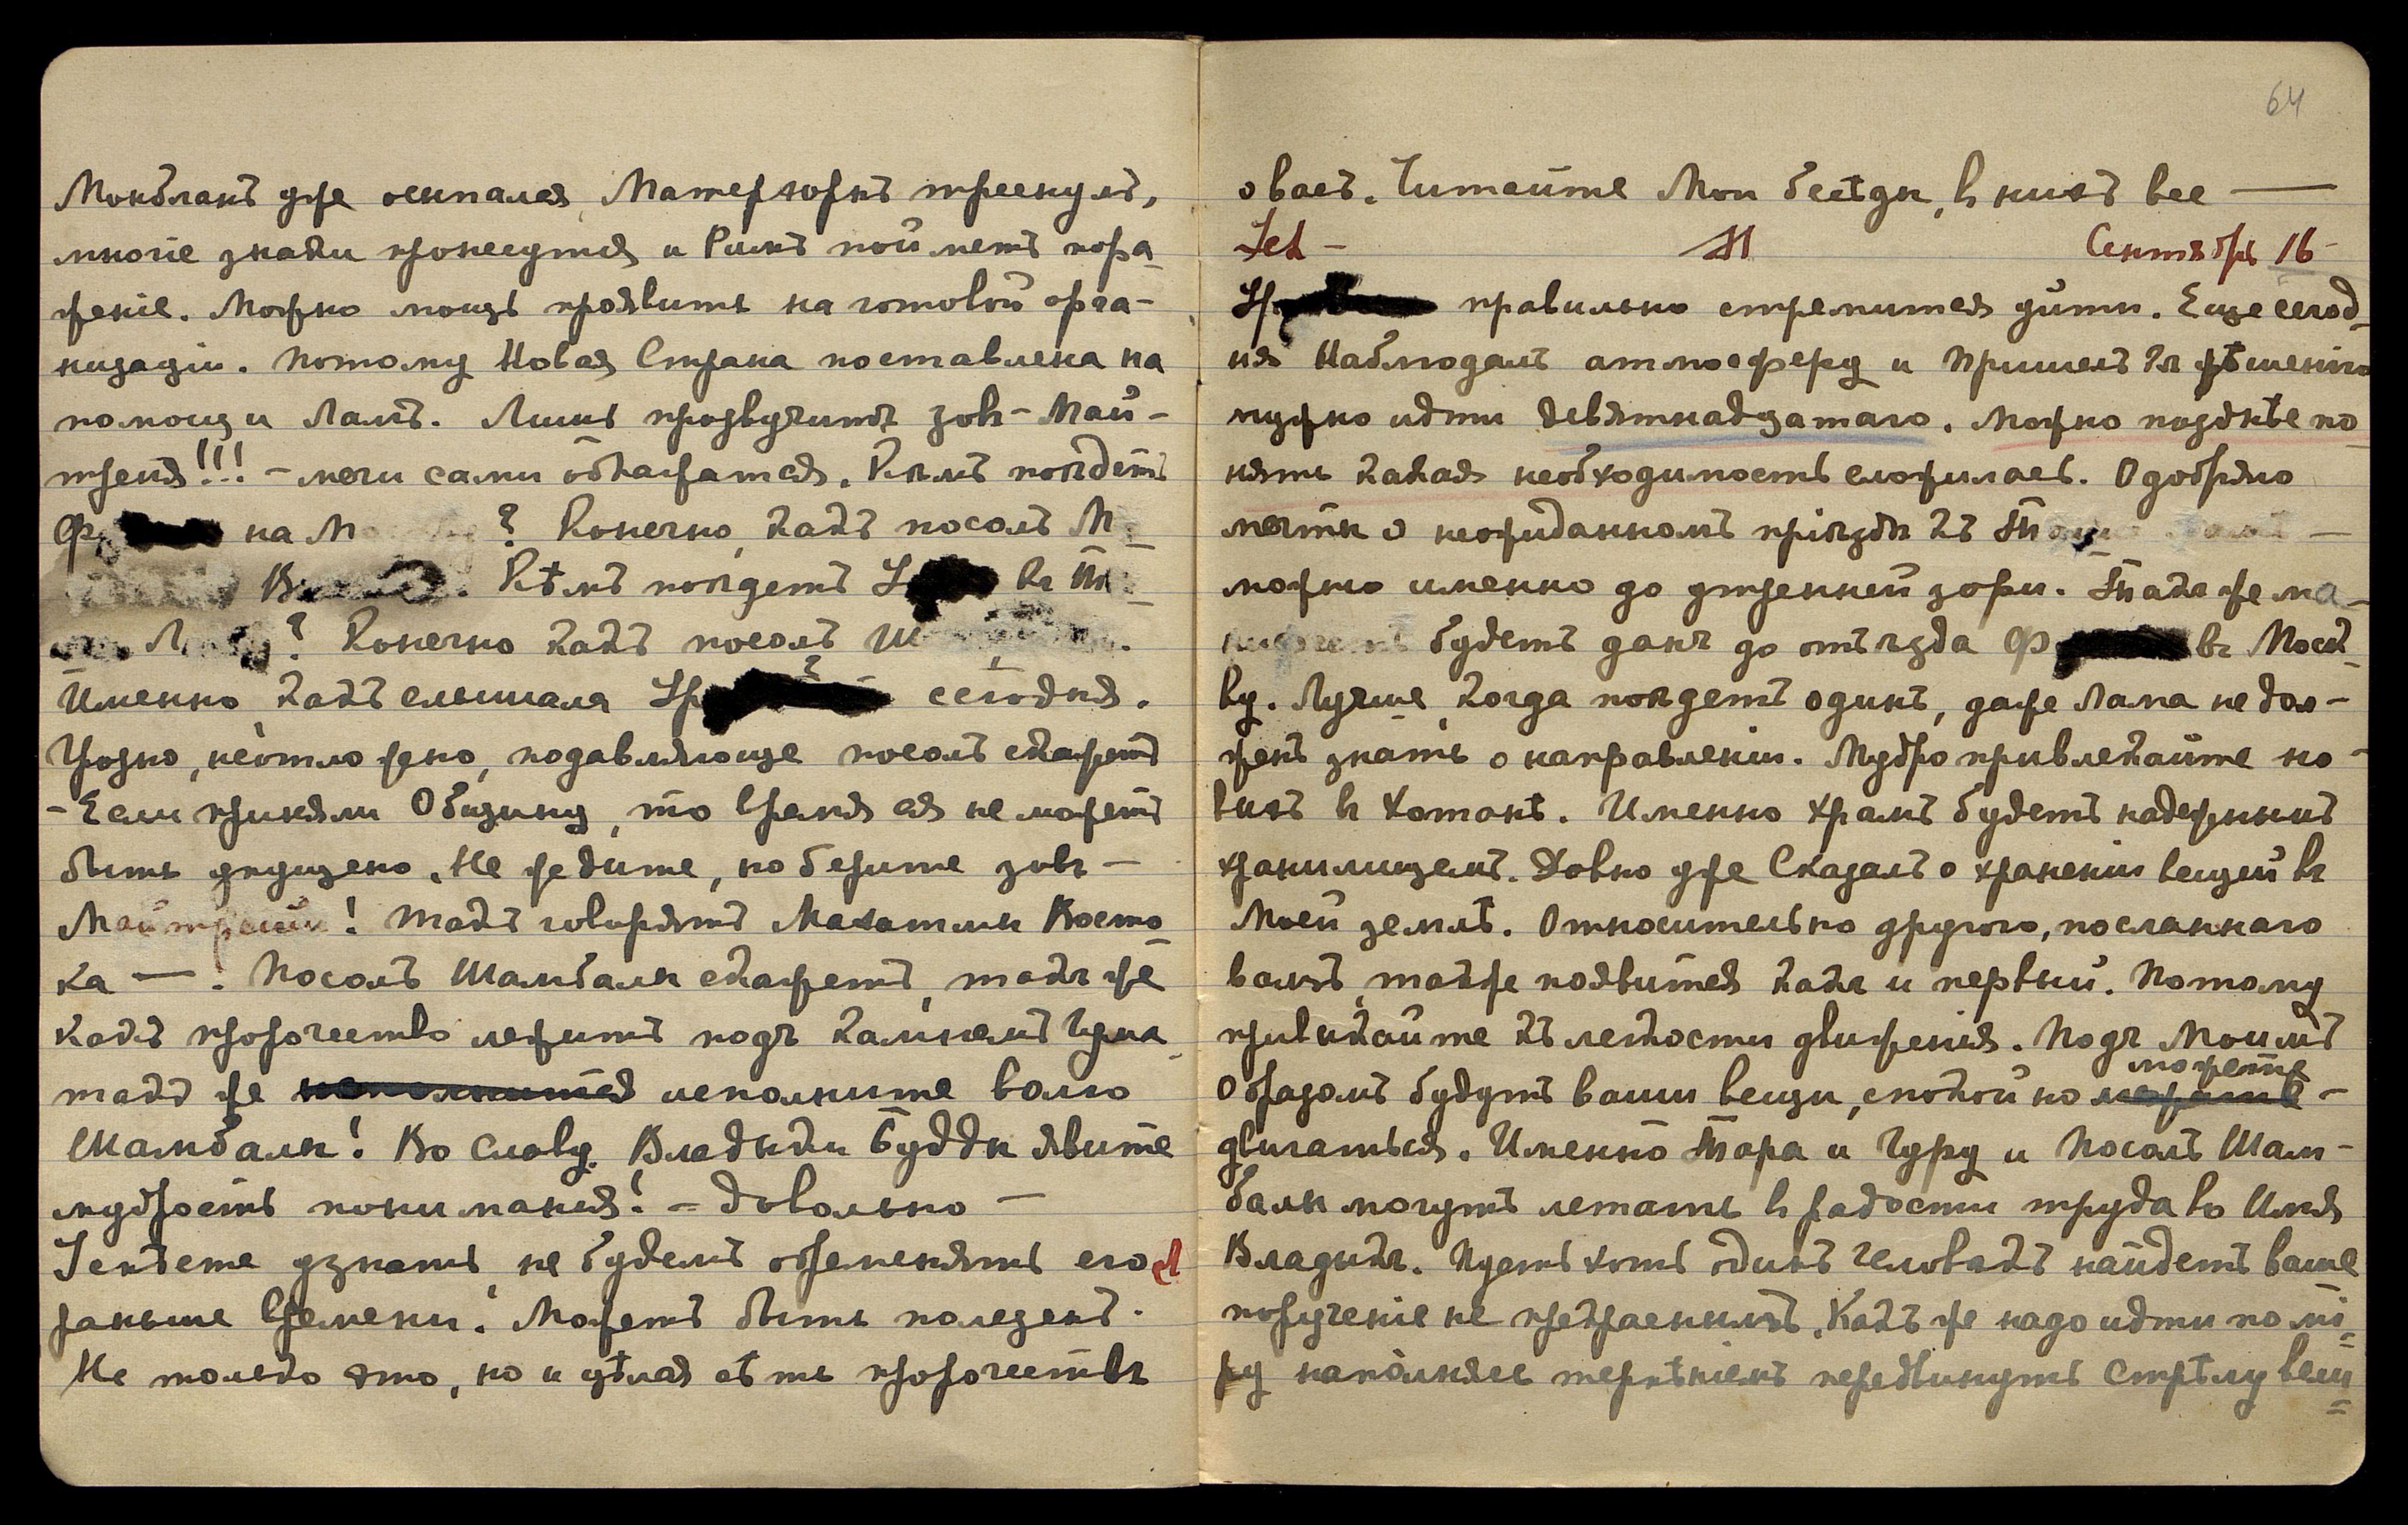 Монбланъ уже осыпался, Матерхорнъ треснулъ,
многіе знаки пронесутся и Римъ пойметъ пора-
женіе. Можно мощь проявить на готовой орга-
низаціи. Потому Новая Страна поставлена на
помощи Ламъ. Лишь прозвучитъ зовъ - Май-
трейя!!! - мечи сами обнажатся. Кѣмъ поѣдетъ
Ф на М ? Конечно, какъ посолъ М
В . Кѣмъ поѣдетъ У въ
Л ? Конечно какъ посолъ Ш .
Именно, какъ слышала Ур сегодня.
Грозно, неотложно, подавляюще посолъ скажетъ
- Если приняли Общину, то время ея не можетъ
быть упущено. Не ждите, но берите зовъ -
Майтрейи! Такъ говорятъ Махатмы Восто-
ка —. Посолъ Шамбалы скажетъ, такъ же
какъ пророчество лежитъ подъ камнемъ Гума
такъ же исполните волю
Шамбалы! Во славу Владыки Будды явите
мудрость пониманія! - Довольно -
не будемъ обременять его
раньше времени. Можетъ быть полезенъ.
Не только это, но и цѣлая сѣть пророчествъ
64
о васъ. Читайте Мои бесѣды, въ нихъ все —
М Сентябрь 16 -
Ур правильно стремится уйти. Еще сегод-
ня Наблюдалъ атмосферу и Пришелъ къ рѣшенію
нужно идти девятнадцатаго. Можно позднѣе по-
нять какая необходимость сложилась. Одобряю
мечты о неожиданномъ пріѣздѣ къ —
можно именно до утренней зори. Такъ же ма-
нифестъ будетъ данъ до отъѣзда Ф въ Моск-
ву. Лучше, когда поѣдетъ одинъ, даже Лама не дол-
женъ знать о направленіи. Мудро привлекайте но-
выхъ въ Хотанъ. Именно храмъ будетъ надежнымъ
хранилищемъ. Давно уже Сказалъ о храненіи вещей въ
Моей землѣ. Относительно другого, посланнаго
вамъ, также появится какъ и первый. Потому
привыкайте къ легкости движенія. Подъ Моимъ
можете
Образомъ будутъ ваши вещи, спокойно -
двигаться. Именно Тара и Гуру и Посолъ Шам-
балы могутъ летать въ радости труда во Имя
Владыкъ. Пусть хоть одинъ человѣкъ найдетъ ваше
порученіе не прекраснымъ. Какъ же надо идти по мі-
ру наполняясь терпѣніемъ передвинуть Стрѣлу вещ-